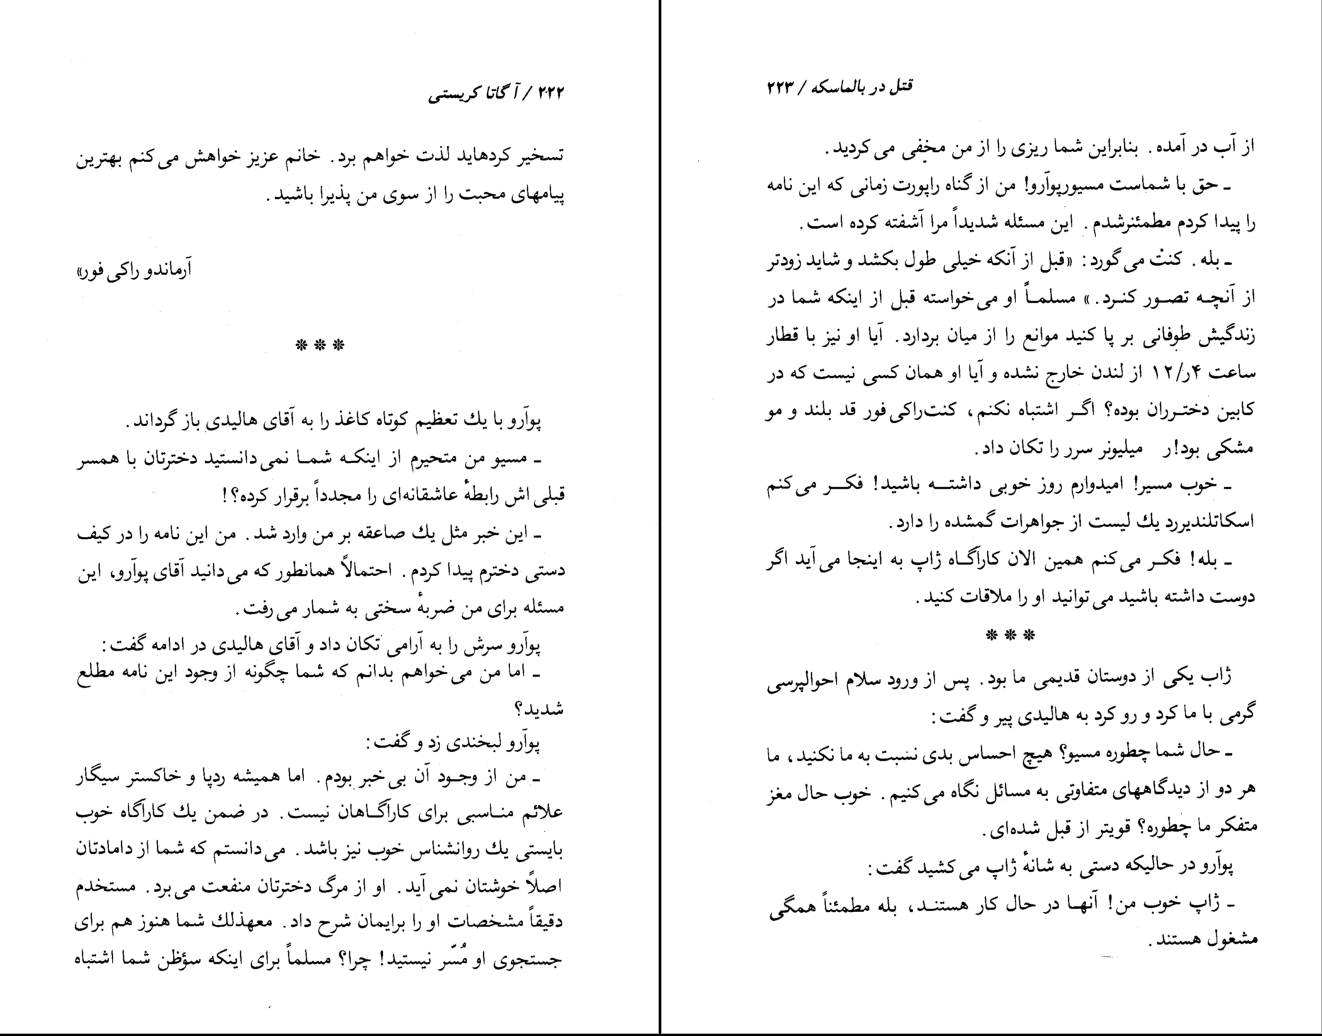 ۲۲۲ / آ گاتا کریستی
تسخیر کرده‌اید لذت خواهم برد. خانم عزیز خواهش می‌کنم بهترین
پیامهای محبت را از سوی من پذیرا باشید.
آرماندو راکی فور»
***
پوآرو با یك تعظیم کوتاه کاغذ را به آقای هالیدی باز گرداند.
ـ مسیو من متحیرم از اینکه شما نمی‌دانستید دخترتان با همسر
قبلی اش رابطهٔ عاشقانه‌ای را مجدداً برقرار کرده؟!
ـ این خبر مثل یك صاعقه بر من وارد شد. من این نامه را در کیف
دستی دخترم پیدا کردم. احتمالاً همانطور که می‌دانید آقای پوآرو، این
مسئله برای من ضربهٔ سختی به شمار می‌رفت.
پوآرو سرش را به آرامی تکان داد و آقای هالیدی در ادامه گفت:
ـ اما من می‌خواهم بدانم که شما چگونه از وجود این نامه مطلع
شدید؟
پوآرو لبخندی زد و گفت:
ـ من از وجود آن بی‌خبر بودم. اما همیشه ردپا و خاکستر سیگار
علائم مناسبی برای کارآگاهان نیست. در ضمن یك کارآگاه خوب
بایستی یك روانشناس خوب نیز باشد. می‌دانستم که شما از دامادتان
اصلاً خوشتان نمی‌آید. او از مرگ دخترتان منفعت می‌برد. مستخدم
دقیقاً مشخصات او را برایمان شرح داد. معهذلك شما هنوز هم برای
جستجوی او مُسّر نیستید! چرا؟ مسلماً برای اینکه سؤظن شما اشتباه
قتل در بالماسکه / ۲۲۳
از آب در آمده. بنابراین شما ریزی را از من مخفی می‌کردید.
ـ حق با شماست مسیورپوآرو! من از گناه راپورت زمانی که این نامه
را پیدا کردم مطمئنرشدم. این مسئله شدیداً مرا آشفته کرده است.
ـ بله. کنت می‌گورد: «قبل از آنکه خیلی طول بکشد و شاید زودتر
از آنچه تصور کنرد.» مسلماً او می‌خواسته قبل از اینکه شما در
زندگیش طوفانی بر پا کنید موانع را از میان بردارد. آیا او نیز با قطار
ساعت ۱۲/ر۴ از لندن خارج نشده و آیا او همان کسی نیست که در
کابین دخترران بوده؟ اگر اشتباه نکنم، کنت‌راکی فور قد بلند و مو
مشکی بود!ر میلیونر سرر را تکان داد.
ـ خوب مسیر! امیدوارم روز خوبی داشته باشید! فکر می‌کنم
اسکاتلندیررد یك لیست از جواهرات گمشده را دارد.
ـ بله! فکر می‌کنم همین الان کارآگاه ژاپ به اینجا می‌آید اگر
دوست داشته باشید می‌توانید او را ملاقات کنید.
***
ژاب یکی از دوستان قدیمی ما بود. پس از ورود سلام احوالپرسی
گرمی با ما کرد و رو کرد به هالیدی پیر و گفت:
ـ حال شما چطوره مسیو؟ هیچ احساس بدی نسبت به ما نکنید، ما
هر دو از دیدگاههای متفاوتی به مسائل نگاه می‌کنیم. خوب حال مغز
متفکر ما چطوره؟ قویتر از قبل شده‌ای.
پوآرو در حالیکه دستی به شانهٔ ژاپ می‌کشید گفت:
ـ ژاپ خوب من! آنها در حال کار هستند، بله مطمئناً همگی
مشغول هستند.